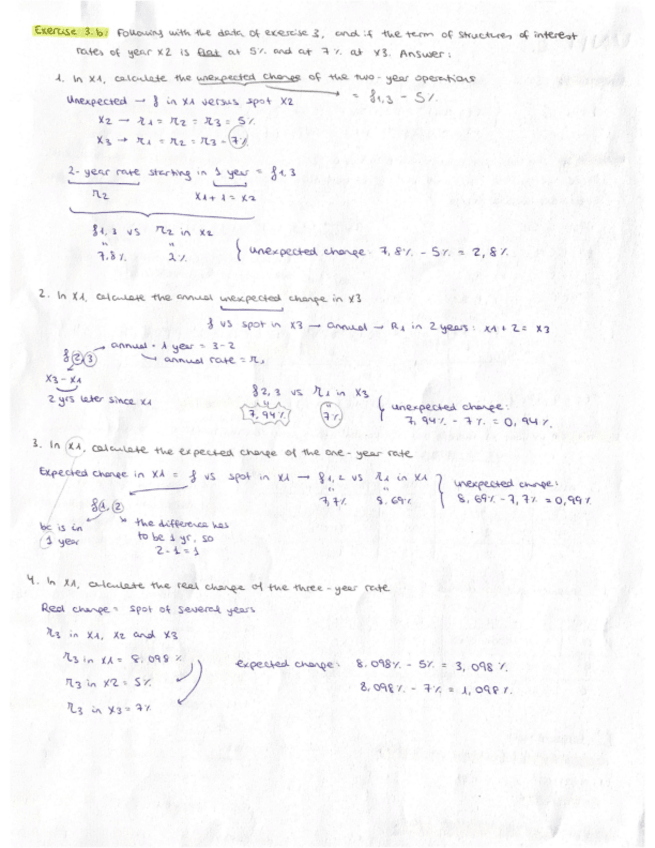 Exercise 3.b: Following with the data of exercise 3, and if the term of structures of interest
rates of year x2 is flat at 5% and at 7% at x3. Answer:
1. In x1, calculate the unexpected change of the two-year operations
= f1,3 - 5%
Unexpected → f in x1 versus spot x2
x2 → r1 = r2 = r3 = 5%
x3 → r1 = r2 = r3 = 7%
2-year rate starting in 1 year = f1,3
r2 x1+1 = x2
f1,3 vs r2 in x2
7,8% 2%
unexpected change: 7,8% - 5% = 2,8%
2. In x1, calculate the annual unexpected change in x3
f vs spot in x3 → annual → R1 in 2 years: x1 + 2 = x3
f2,3
annual · 1 year = 3-2
annual rate = r1
x3 - x1
2 yrs later since x1
f2,3 vs r1 in x3
7,94% 7%
unexpected change:
7,94% - 7% = 0,94%
3. In x1, calculate the expected change of the one-year rate
Expected change in x1 = f vs spot in x1 → f1,2 vs r1 in x1
7,7% 8.69%
unexpected change:
8,69% - 7,7% = 0,99%
f1,2
bc is in
1 year
the difference has
to be 1 yr, so
2-1 = 1
4. In x1, calculate the real change of the three-year rate
Real change = spot of several years
r3 in x1, x2 and x3
r3 in x1 = 8.098%
r3 in x2 = 5%
r3 in x3 = 7%
expected change: 8.098% - 5% = 3,098%
8,098% - 7% = 1,098%